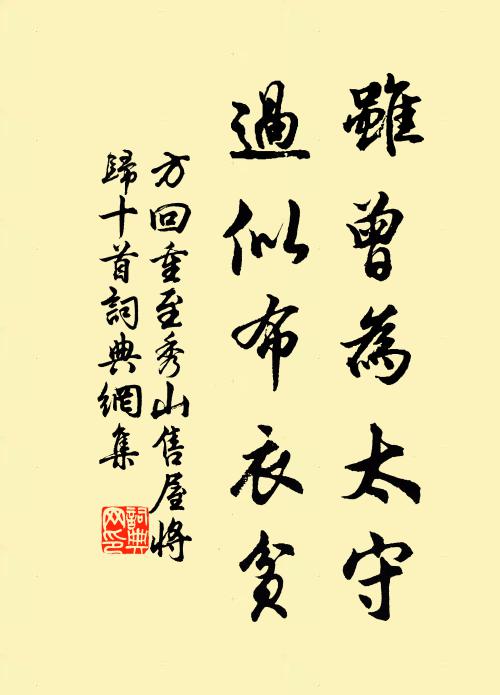 雖曾為太守
過似布衣貧
方回重至秀山售屋將
歸十首詞典網集
詞典
网印